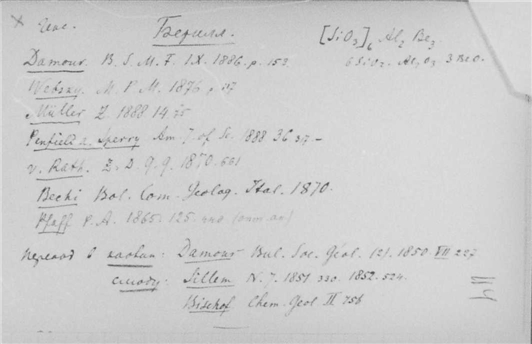 Берилл. [SiO3]6 Al2 Be3
Damour. B. S. M. F. IX. 1886. p. 153. 6SiO2. Al2O3 3BeO.
Websky. M. P. M. 1876, 117
Müller Z. 1888 14 75
Penfield a. Sperry Am J. of Sc. 1888 36 317 –
v. Rath. Z. D. g. G. 1870. 661
Bechi Bol. Com. Geolog. Ital. 1870.
Pfaff P. A. 1865. 125.
переход в каолин: Damour Bul. Soc. Géol. [2]. 1850. VII 227
слюду: Sillem N. J. 1851. 330. 1852. 524.
Bischof Chem. Geol. II 756